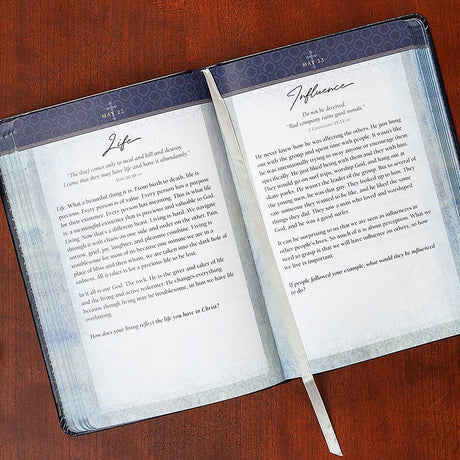 MAY 22
Life
"The thief comes only to steal and kill and destroy.
I came that they may have life and have it abundantly."
John 10:10 ESV
Life. What a beautiful thing it is. From birth to death, life is
precious. Every person is of value. Every person has a purpose
for their existence. Every person has meaning. This is what life
is, a meaningful existence that is precious and valuable to God.
Living. Now that's a different beast. Living is hard. We navigate
through it with chaos on one side and order on the other. Pain,
sorrow, grief, joy, laughter, and pleasure combine. Living is
troublesome for most of us because one minute we are in a
place of bliss and then wham, we are taken into the dark hole of
sadness. All it takes is for a precious life to be lost.
In it all is our God. The rock. He is the giver and taker of life
and the living and active redeemer. He changes everything
because though living may be troublesome, in him we have life
everlasting.
How does your living reflect the life you have in Christ?
MAY 23
Influence
Do not be deceived:
"Bad company ruins good morals."
1 Corinthians 15:33 ESV
He never knew how he was affecting the others. He just hung
out with the group and spent time with people. It wasn't like
he was intentionally trying to sway anyone or encourage them
specifically. He just liked being with them and they with him.
They would go on surf trips, worship God, and hang out at
skate parks. He wasn't the leader of the group. But to several of
the young men, he was that guy. They looked up to him. They
saw someone they wanted to be like, and he liked the same
things they did. They saw a man who loved and worshiped
God, and he was a good surfer.
It can be surprising to us that we are seen as influencers in
other people's lives. So much of it is about perception. What we
need to grasp is that we will have influence on others, so how
we live is important.
If people followed your example, what would they be influenced
to do?